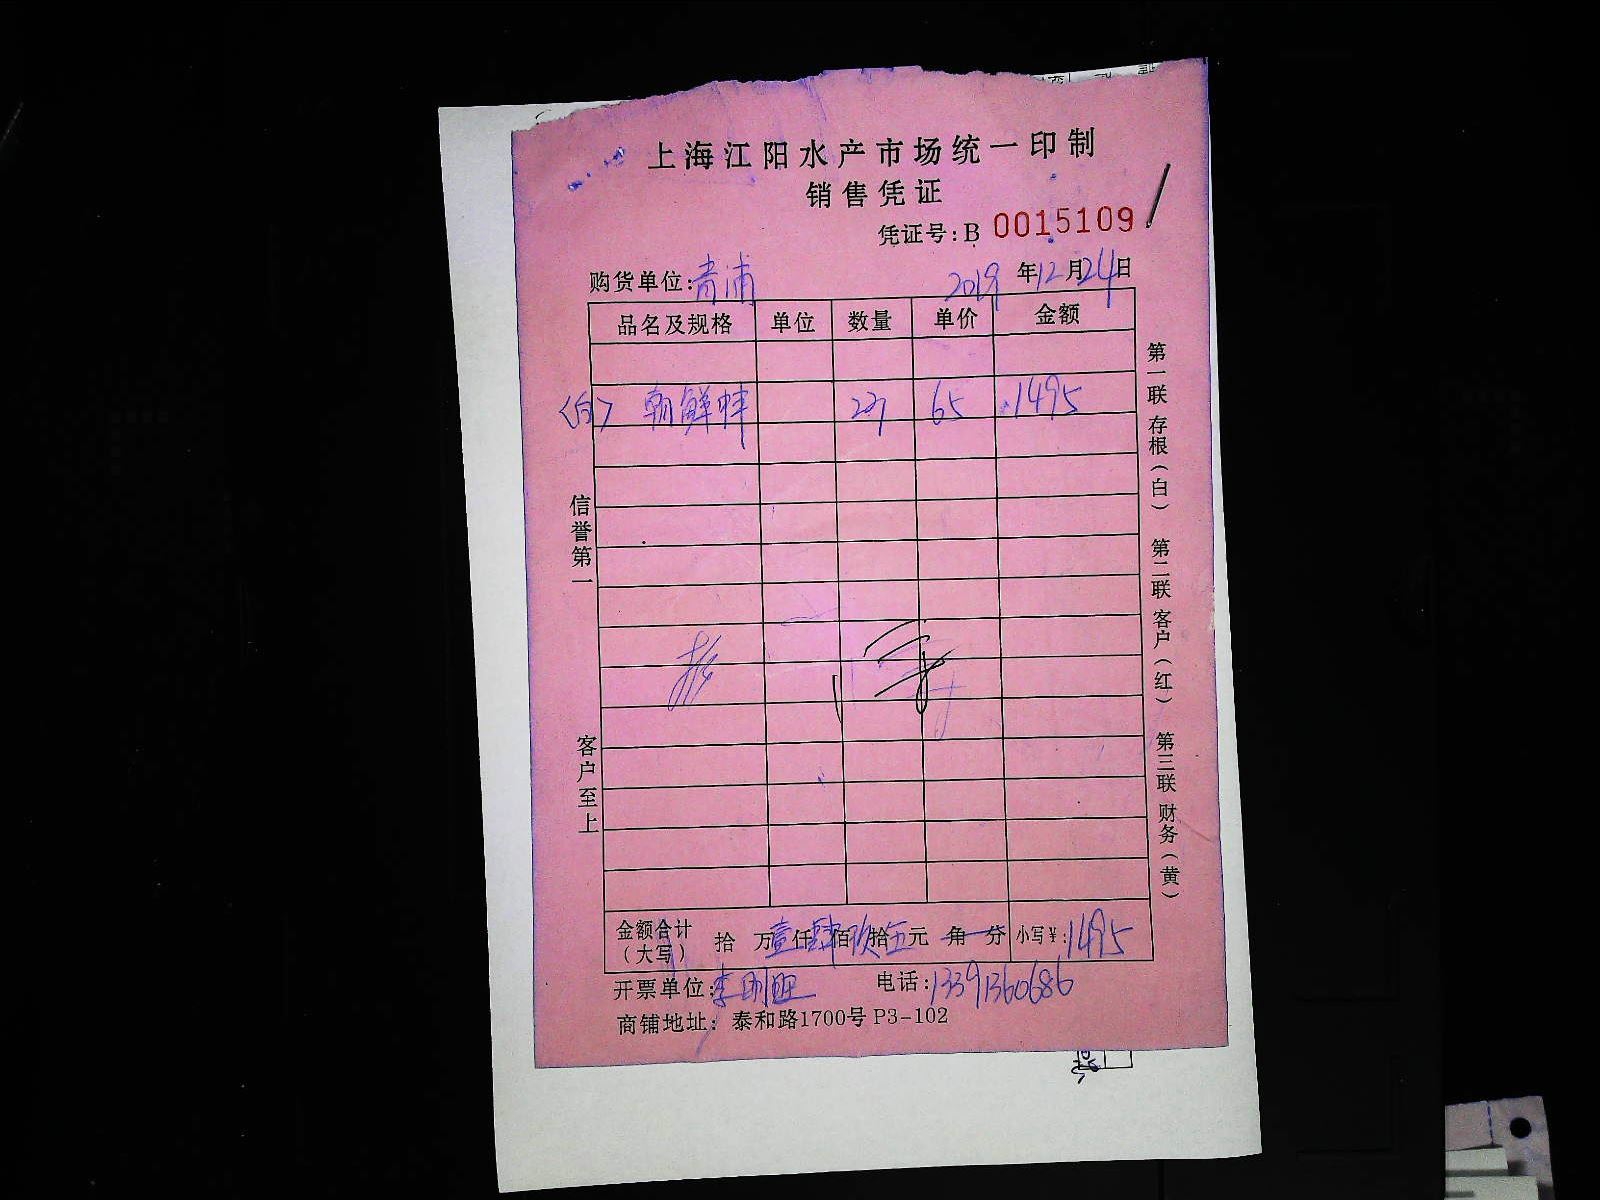 上海江阳水产市场统一印制
销售凭证
凭证号:B 0015109
购货单位:青浦 2019年12月24日
品名及规格 单位 数量 单价 金额
朝鲜蚌 65 1495
信誉第一
客户至上
第一联 存根(白) 第二联 客户(红) 第三联 财务(黄)
金额合计(大写) 拾 万壹仟肆佰玖拾伍元 角 分 小写¥:1495
开票单位: 电话:13391360686
商铺地址: 泰和路1700号 P3-102